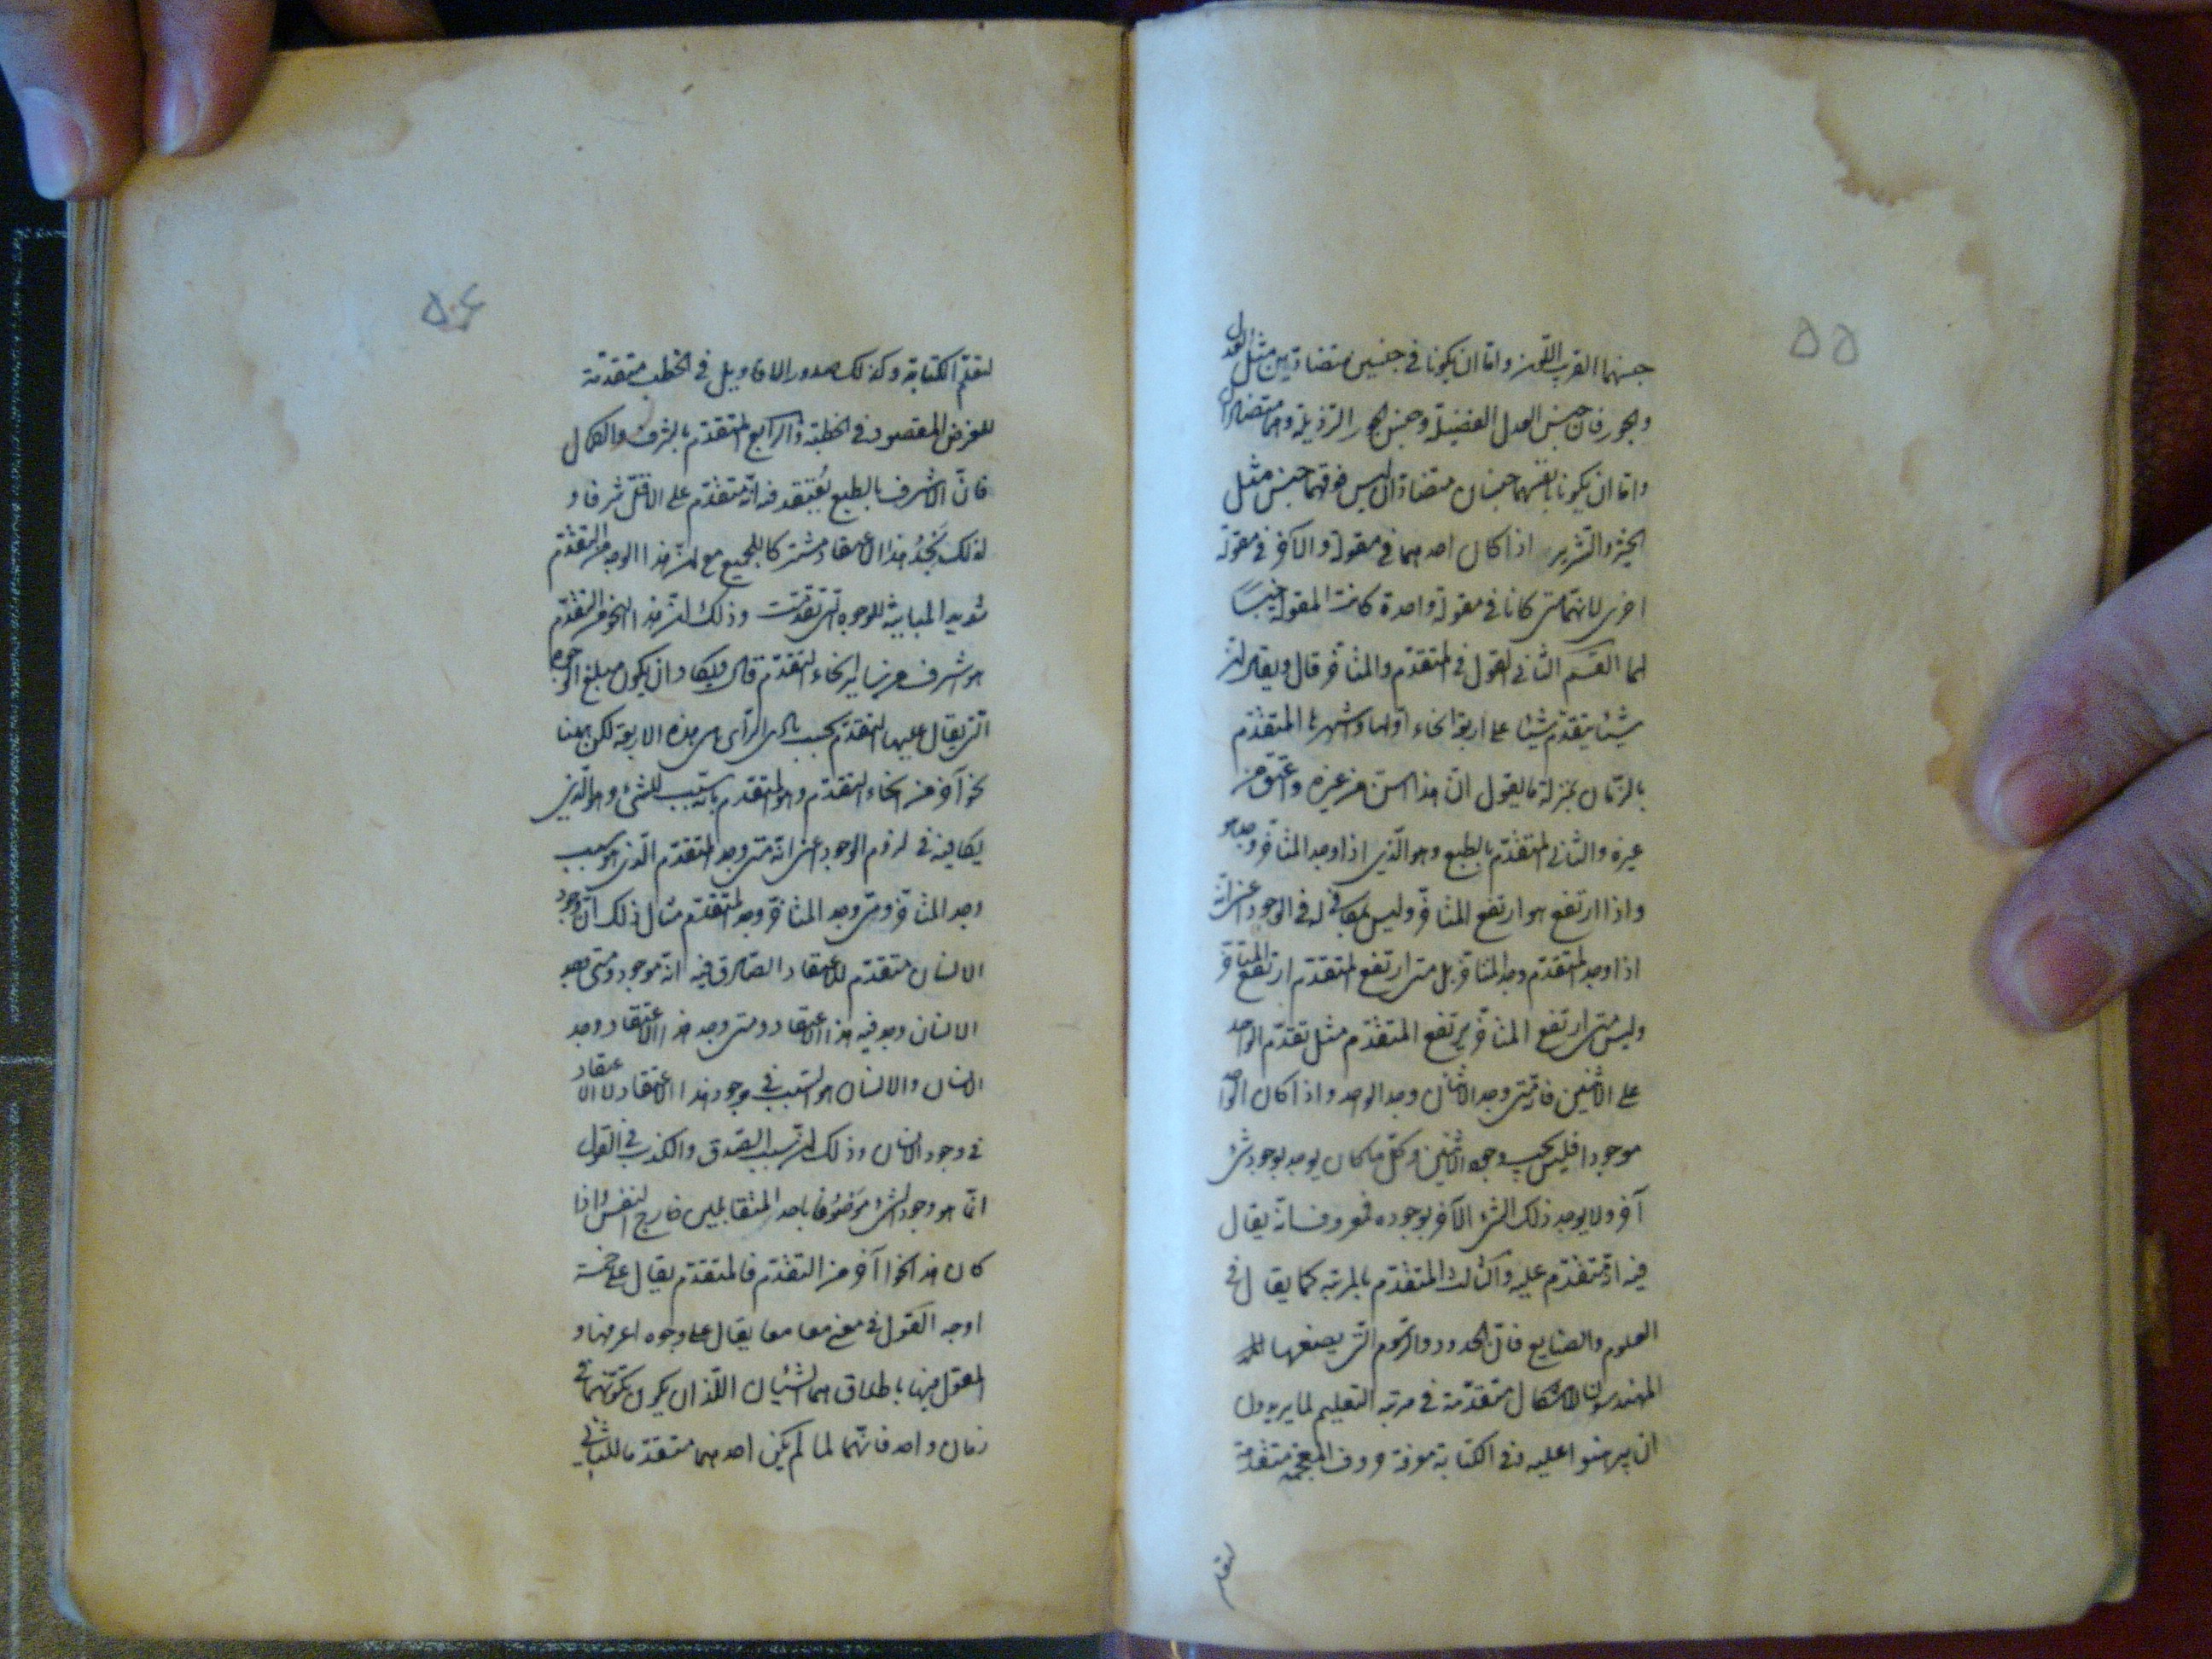 ۵۵
جنسهما القريب اللون واما ان يكونا في جنسين متضادين مثل العدل
والجور فان جنس العدل الفضيلة وجنس الجور الرذيلة وهما متضادان
واما ان يكونا بانفسهما جنسان متضادان ليس فوقهما جنس مثل
الخير والشرير اذا كان احدهما في مقولة والآخر في مقولة
اخرى لانهما متى كانا في مقولة واحدة كانت المقولة جنساً
لهما القسم الثاني القول في المتقدم والمتاخر قال ويقال ان
شيئا يتقدم شيئا على اربعة انحاء اولها واشهرها المتقدم
بالزمان بمنزلة ما يقول انّ هذا اسنّ من غيره واعتق من
غيره والثاني المتقدم بالطبع وهو الذي اذا وجد المتاخر وجد هو
واذا ارتفع هو ارتفع المتاخر وليس بمكافئ له في الوجود اعني انه
اذا وجد المتقدم وجد المتاخر بل متى ارتفع المتقدم ارتفع المتاخر
وليس متى ارتفع المتاخر يرتفع المتقدم مثل تقدم الواحد
على الاثنين فانه متى وجد الاثنان وجد الواحد واذا كان الواحد
موجودا فليس يجب وجود الاثنين وكل ما كان يوجد بوجود شئ
آخر ولا يوجد ذلك الشئ الآخر بوجوده فمعروف انه يقال
فيه انه متقدم عليه والثالث المتقدم بالمرتبة كما يقال في
العلوم والصنايع فان الحدود والرسوم التي يضعها
المهندسون للاشكال متقدمة في مرتبة التعليم لما يريدون
ان يبرهنوا عليه وفي الكتابة معرفة حروف المعجم متقدمة
لتعلم
۵۶
لتعلم الكتابة وكذلك صدور الاقاويل في الخطب متقدمة
للغرض المقصود في الخطبة والرابع المتقدم بالشرف والكمال
فانّ الاشرف بالطبع يُعتقد فيه انه متقدم على الاقل شرفا و
لذلك نجدُ هذا الاعتقاد مشتركا للجميع مع ان هذا الوجه من المتقدم
شديد المباينة للوجوه التي تقدمت وذلك ان هذا النحو من التقدم
هو اشرف من سائر انحاء التقدم قال ويكاد ان يكون مبلغ الوجوه
التي يقال عليها المتقدم بحسب بادى الرأى هى هذه الاربعة لكن ههنا
نحو آخر من انحاء التقدم وهو المتقدم بانه سبب للشئ وهو الذي
يكافيه في لزوم الوجود اعني انه متى وجد المتقدم الذي هو سبب
وجد المتاخر ومتى وجد المتاخر وجد المتقدم مثال ذلك انّ وجود
الانسان متقدم للاعتقاد الصادق فيه انه موجود ومتى وجد
الانسان وجد فيه هذا الاعتقاد ومتى وجد هذا الاعتقاد وجد
الانسان والانسان هو السبب في وجود هذا الاعتقاد لا الاعتقاد
في وجود الانسان وذلك ان سبب الصدق والكذب في القول
انما هو وجود الشئ موصُوفا باحد المتقابلين خارج النفس واذا
كان هذا نحوا آخر من التقدم فالمتقدم يقال على خمسة
اوجه القول في معنى معا معا يقال على وجوه اعرفها و
المقول فيها باطلاق هما الشئيان اللذان يكون تكونهما في
زمان واحد فانهما لما لم يكن احدهما متقدما للثاني